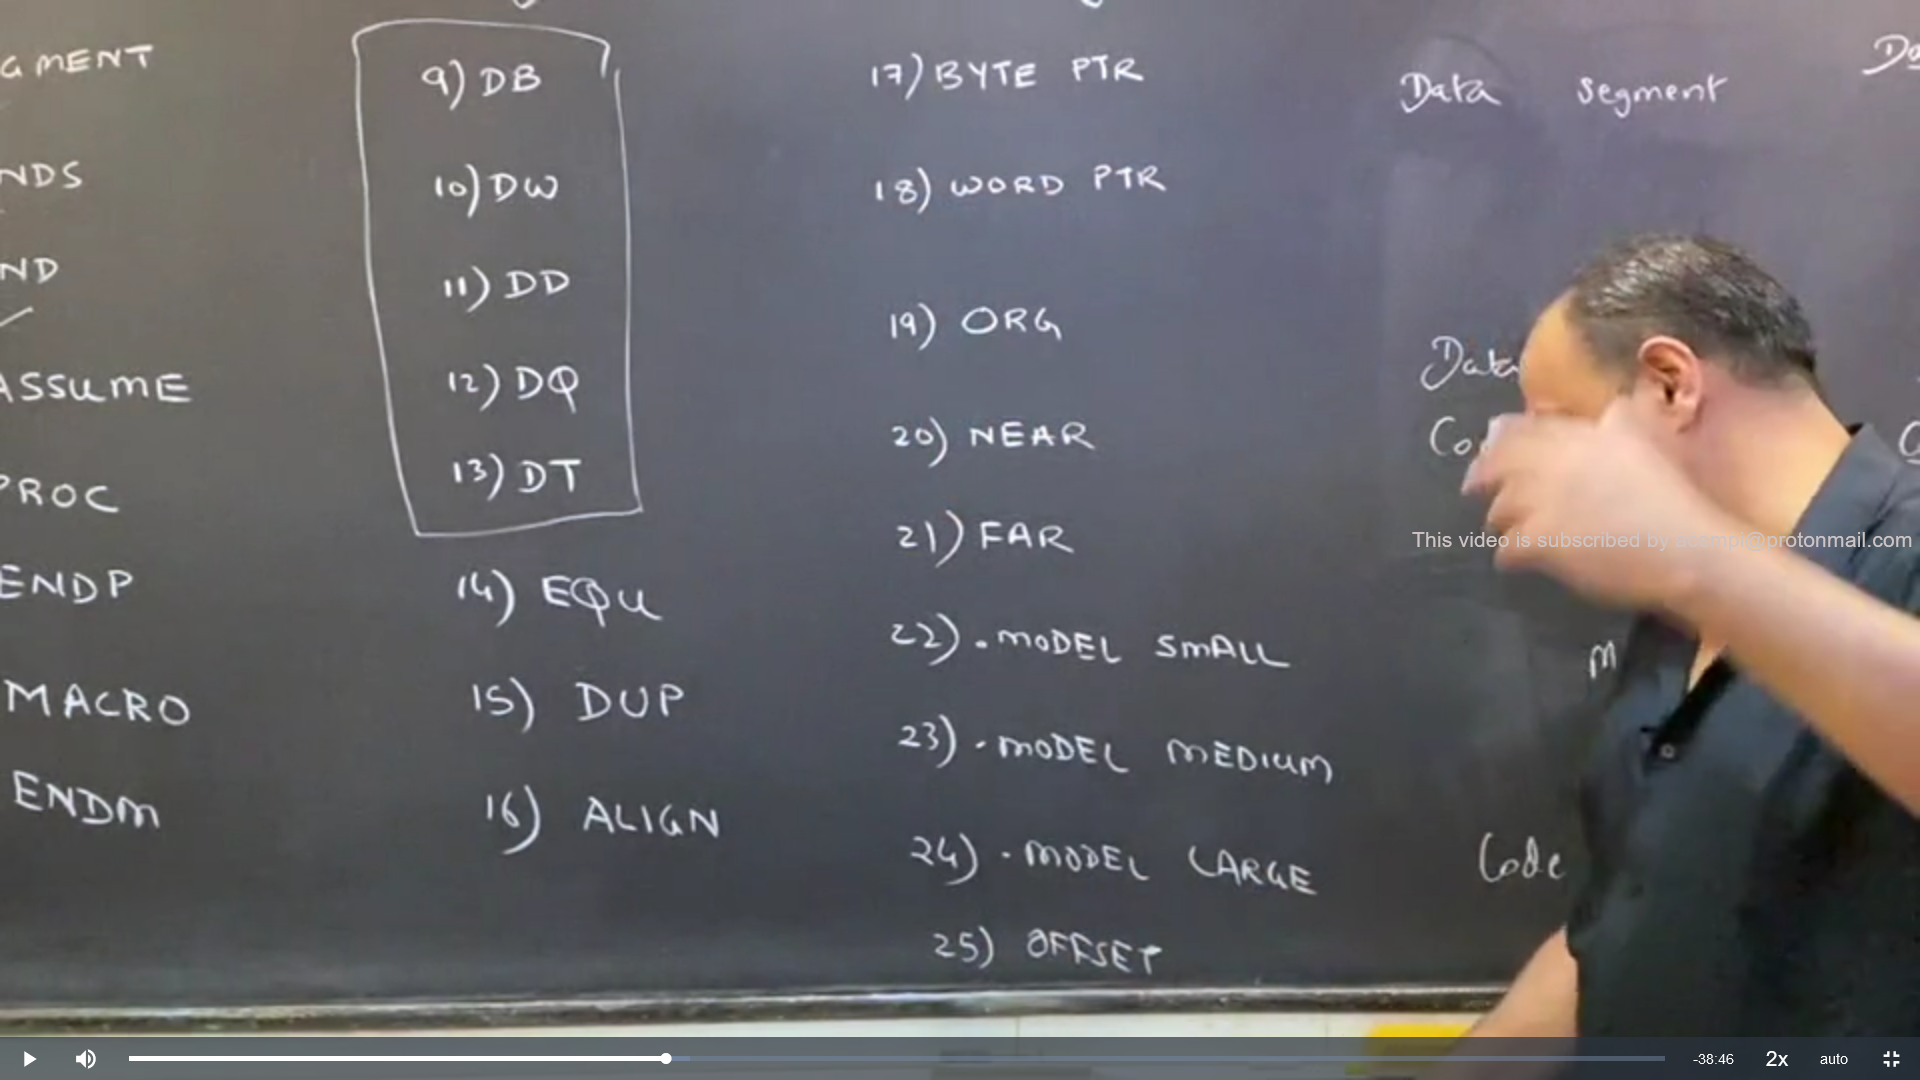 GMENT
NDS
ND
ASSUME
PROC
ENDP
MACRO
ENDM
9) DB
10) DW
11) DD
12) DQ
13) DT
14) EQU
15) DUP
16) ALIGN
17) BYTE PTR
18) WORD PTR
19) ORG
20) NEAR
21) FAR
22) .MODEL SMALL
23) .MODEL MEDIUM
24) .MODEL LARGE
25) OFFSET
Data Segment
Da
Data
Co
M
Code
This video is subscribed by @protonmail.com
-38:46 2x auto